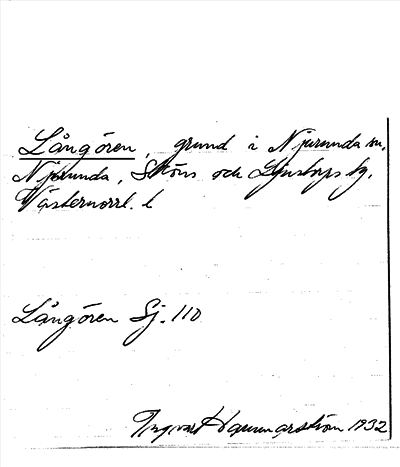 Långören, grund i Njurunda sn,
Njurunda, Sköns och Ljustorps tg,
Västernorrl. l
Långören Sj. 110
Ingvar Hammarström 1932